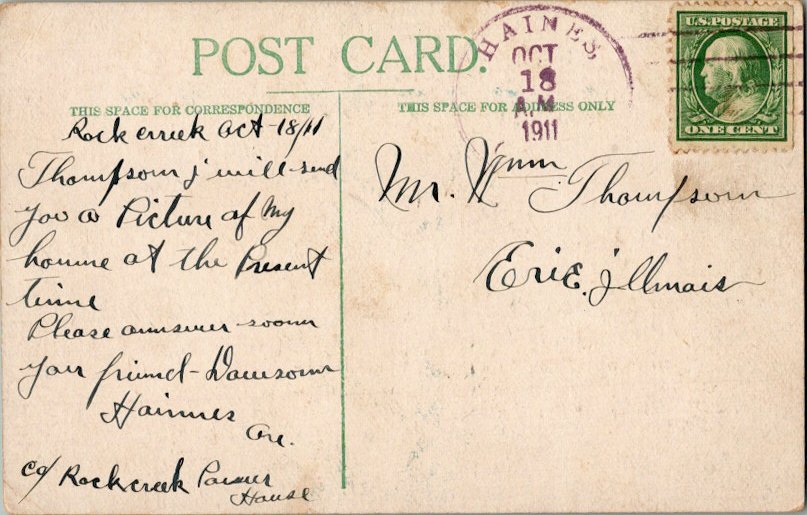 POST CARD.
THIS SPACE FOR CORRESPONDENCE
THIS SPACE FOR ADDRESS ONLY
HAINES,
OCT
18
A.M.
1911
U.S. POSTAGE
ONE CENT
Rock creek Oct-18/11
Thompson j will send
you a Picture of My
home at the Present
time
Please answer soon
your friend - Dawson
Haines
Ore.
c/o Rock creek Power
House
Mr. Thompson
Erie. jllinois